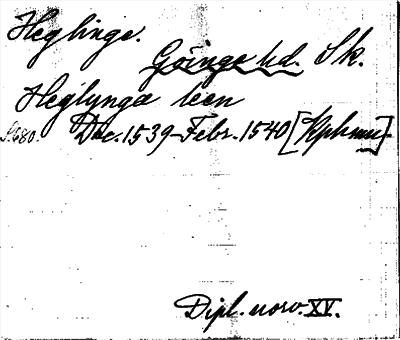 Heglinge.
Göinge hd. Sk.
Heglynga leen
S. 680. Dec. 1539-Febr. 1540 [Kphmn]
Dipl. norv. XV.